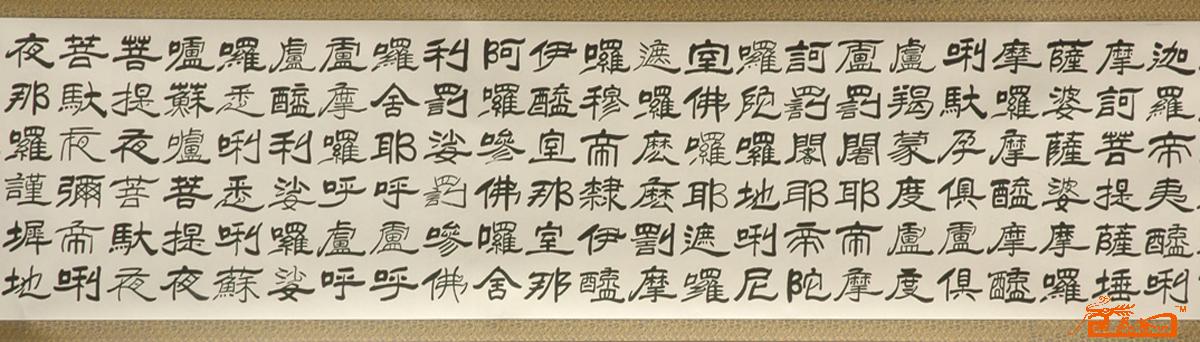 迦羅帝夷醯唎
摩訶菩提薩埵
薩婆薩婆摩囉
摩囉摩醯摩醯
唎馱孕俱盧俱
盧羯蒙度盧度
盧罰闍耶帝摩
訶罰闍耶帝陀
囉陀囉地唎尼
室佛囉耶遮囉
遮囉麼麼罰摩
囉穆帝隸伊醯
伊醯室那室那
阿囉嘇佛囉舍
利罰娑罰嘇佛
囉舍耶呼盧呼
盧摩囉呼盧呼
盧醯利娑囉娑
囉悉唎悉唎蘇
嚧蘇嚧菩提夜
菩提夜菩馱夜
菩馱夜彌帝唎
夜那囉謹墀地